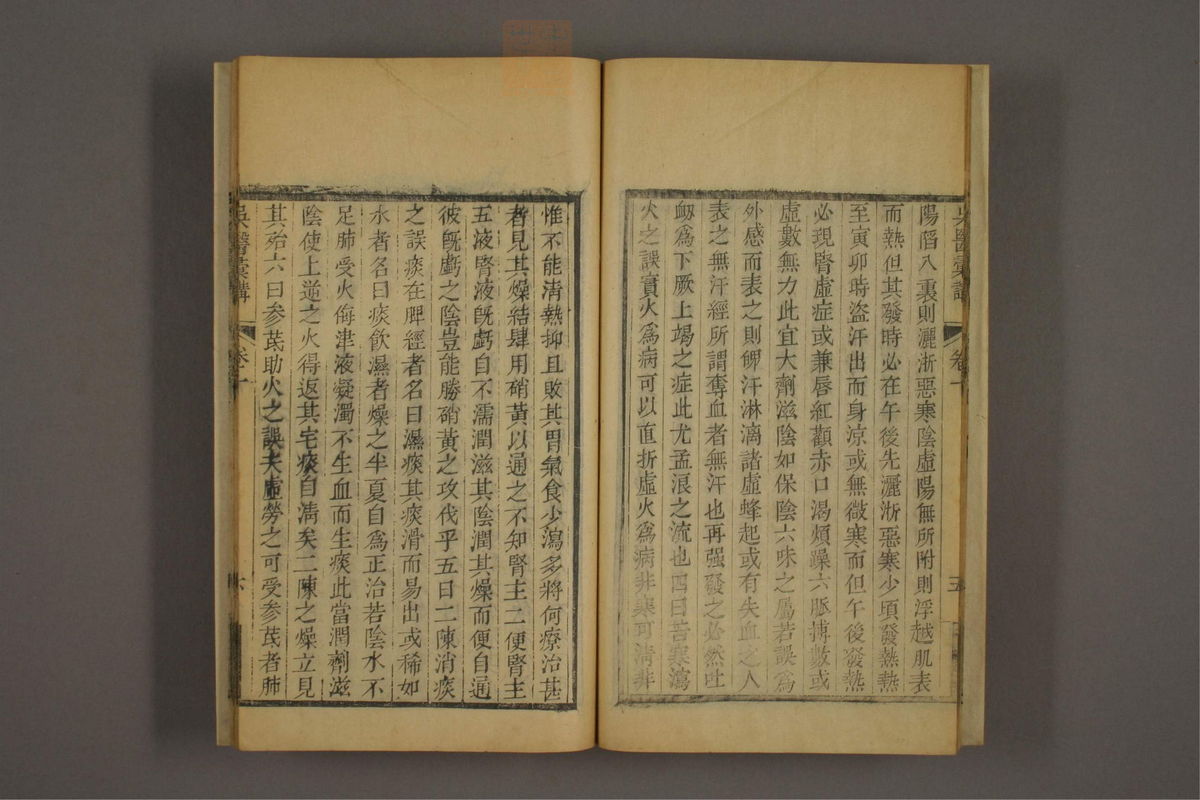 吳醫彙講
卷十
五
陽陷入裏則灑淅惡寒陰虛陽無所附則浮越肌表
而熱但其發時必在午後先灑淅惡寒少頃發熱熱
至寅卯時盜汗出而身凉或無微寒而但午後發熱
必現腎虛症或兼唇紅顴赤口渴煩躁六脈搏數或
虛數無力此宜大劑滋陰如保陰六味之屬若誤爲
外感而表之則魄汗淋漓諸虛蜂起或有失血之人
表之無汗經所謂奪血者無汗也再强發之必然吐
衂爲下厥上竭之症此尤孟浪之流也四曰苦寒瀉
火之誤實火爲病可以直折虛火爲病非寒可淸非
惟不能淸熱抑且敗其胃氣食少瀉多將何療治甚
者見其燥結肆用硝黃以通之不知腎主二便腎主
五液腎液旣虧自不濡潤滋其陰潤其燥而便自通
彼旣虧之陰豈能勝硝黃之攻伐乎五曰二陳消痰
之誤痰在脾經者名曰濕痰其痰滑而易出或稀如
水者名曰痰飮濕者燥之半夏自爲正治若陰水不
足肺受火侮津液凝濁不生血而生痰此當潤劑滋
陰使上逆之火得返其宅痰自淸矣二陳之燥立見
其殆六曰参芪助火之誤夫虛勞之可受参芪者肺
吳醫彙講
卷十
六